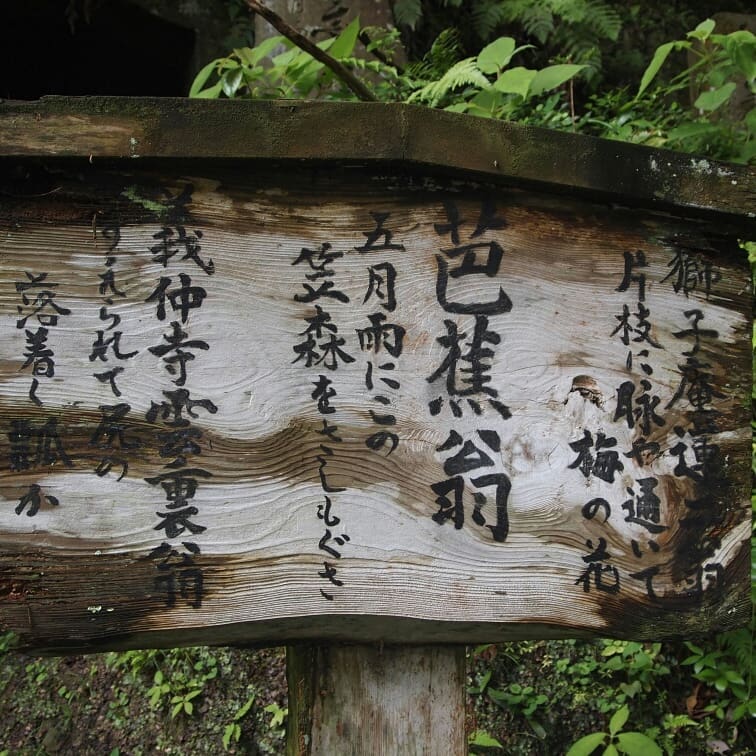 獅子庵連二翁
片枝に脉や通いて
梅の花
芭蕉翁
五月雨にこの
笠森をさしもぐさ
義仲寺雲裏翁
られて尻の
落着く瓢か